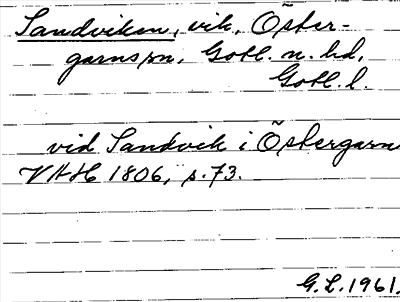 Sandviken, vik, Öster-
garns sn, Gotl. n. hd,
Gotl. l.
vid Sandvik i Östergarn
VAH 1806, s. 73.
G.L. 1961.